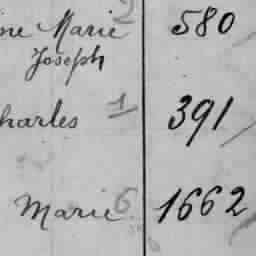 ine Marie 2 580
Joseph
harles 1 391
Marie 6 1662